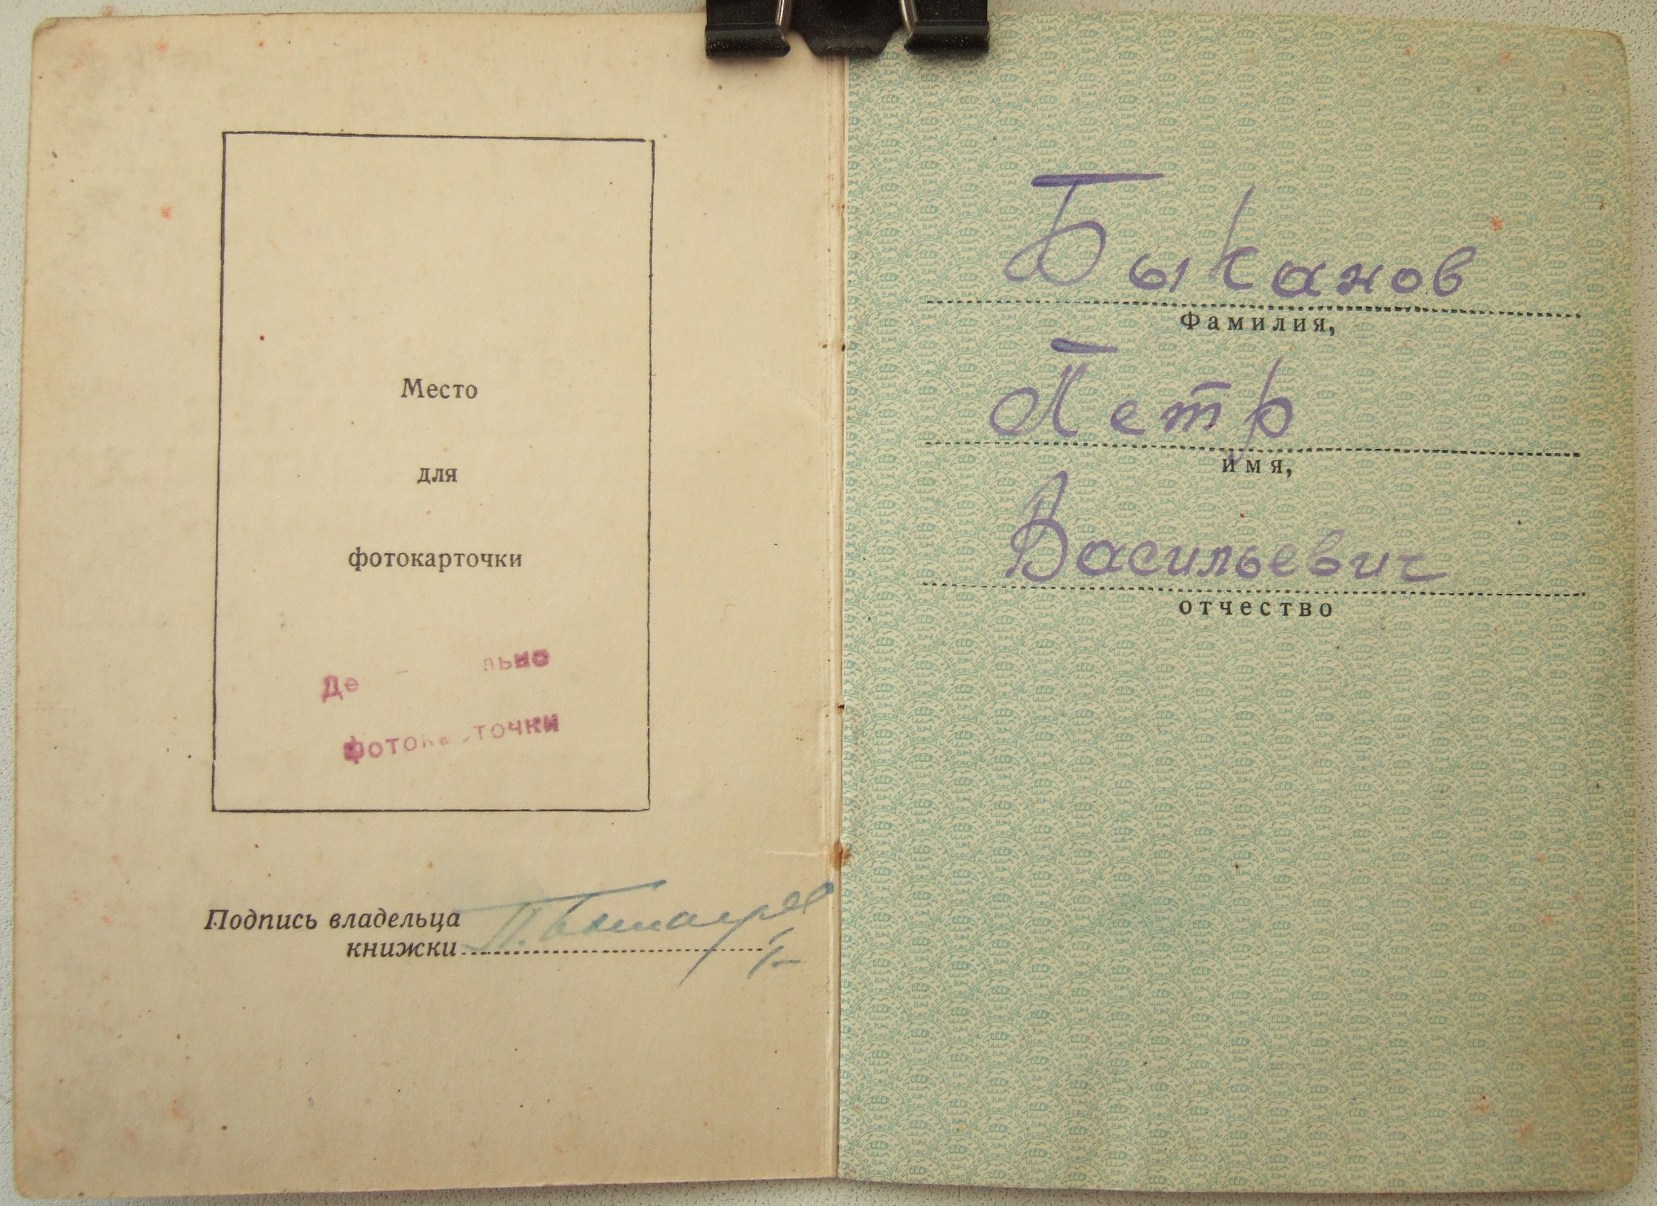 Место
для
фотокарточки
фотокарточки
Подпись владельца
книжки
Быканов
Фамилия,
Петр
имя,
Васильевич
отчество